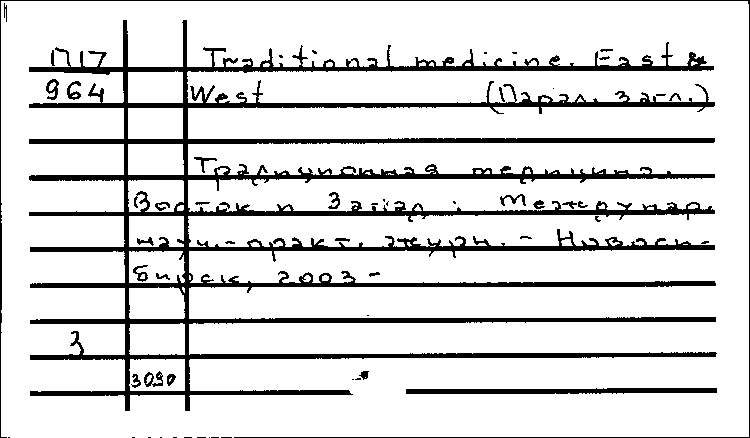 П17 Traditional medicine. East &
964 West (Парал. загл.)
Традиционная медицина.
Восток и Запад : Междунар.
науч.-практ. журн. - Новоси-
бирск, 2003 -
3
3090